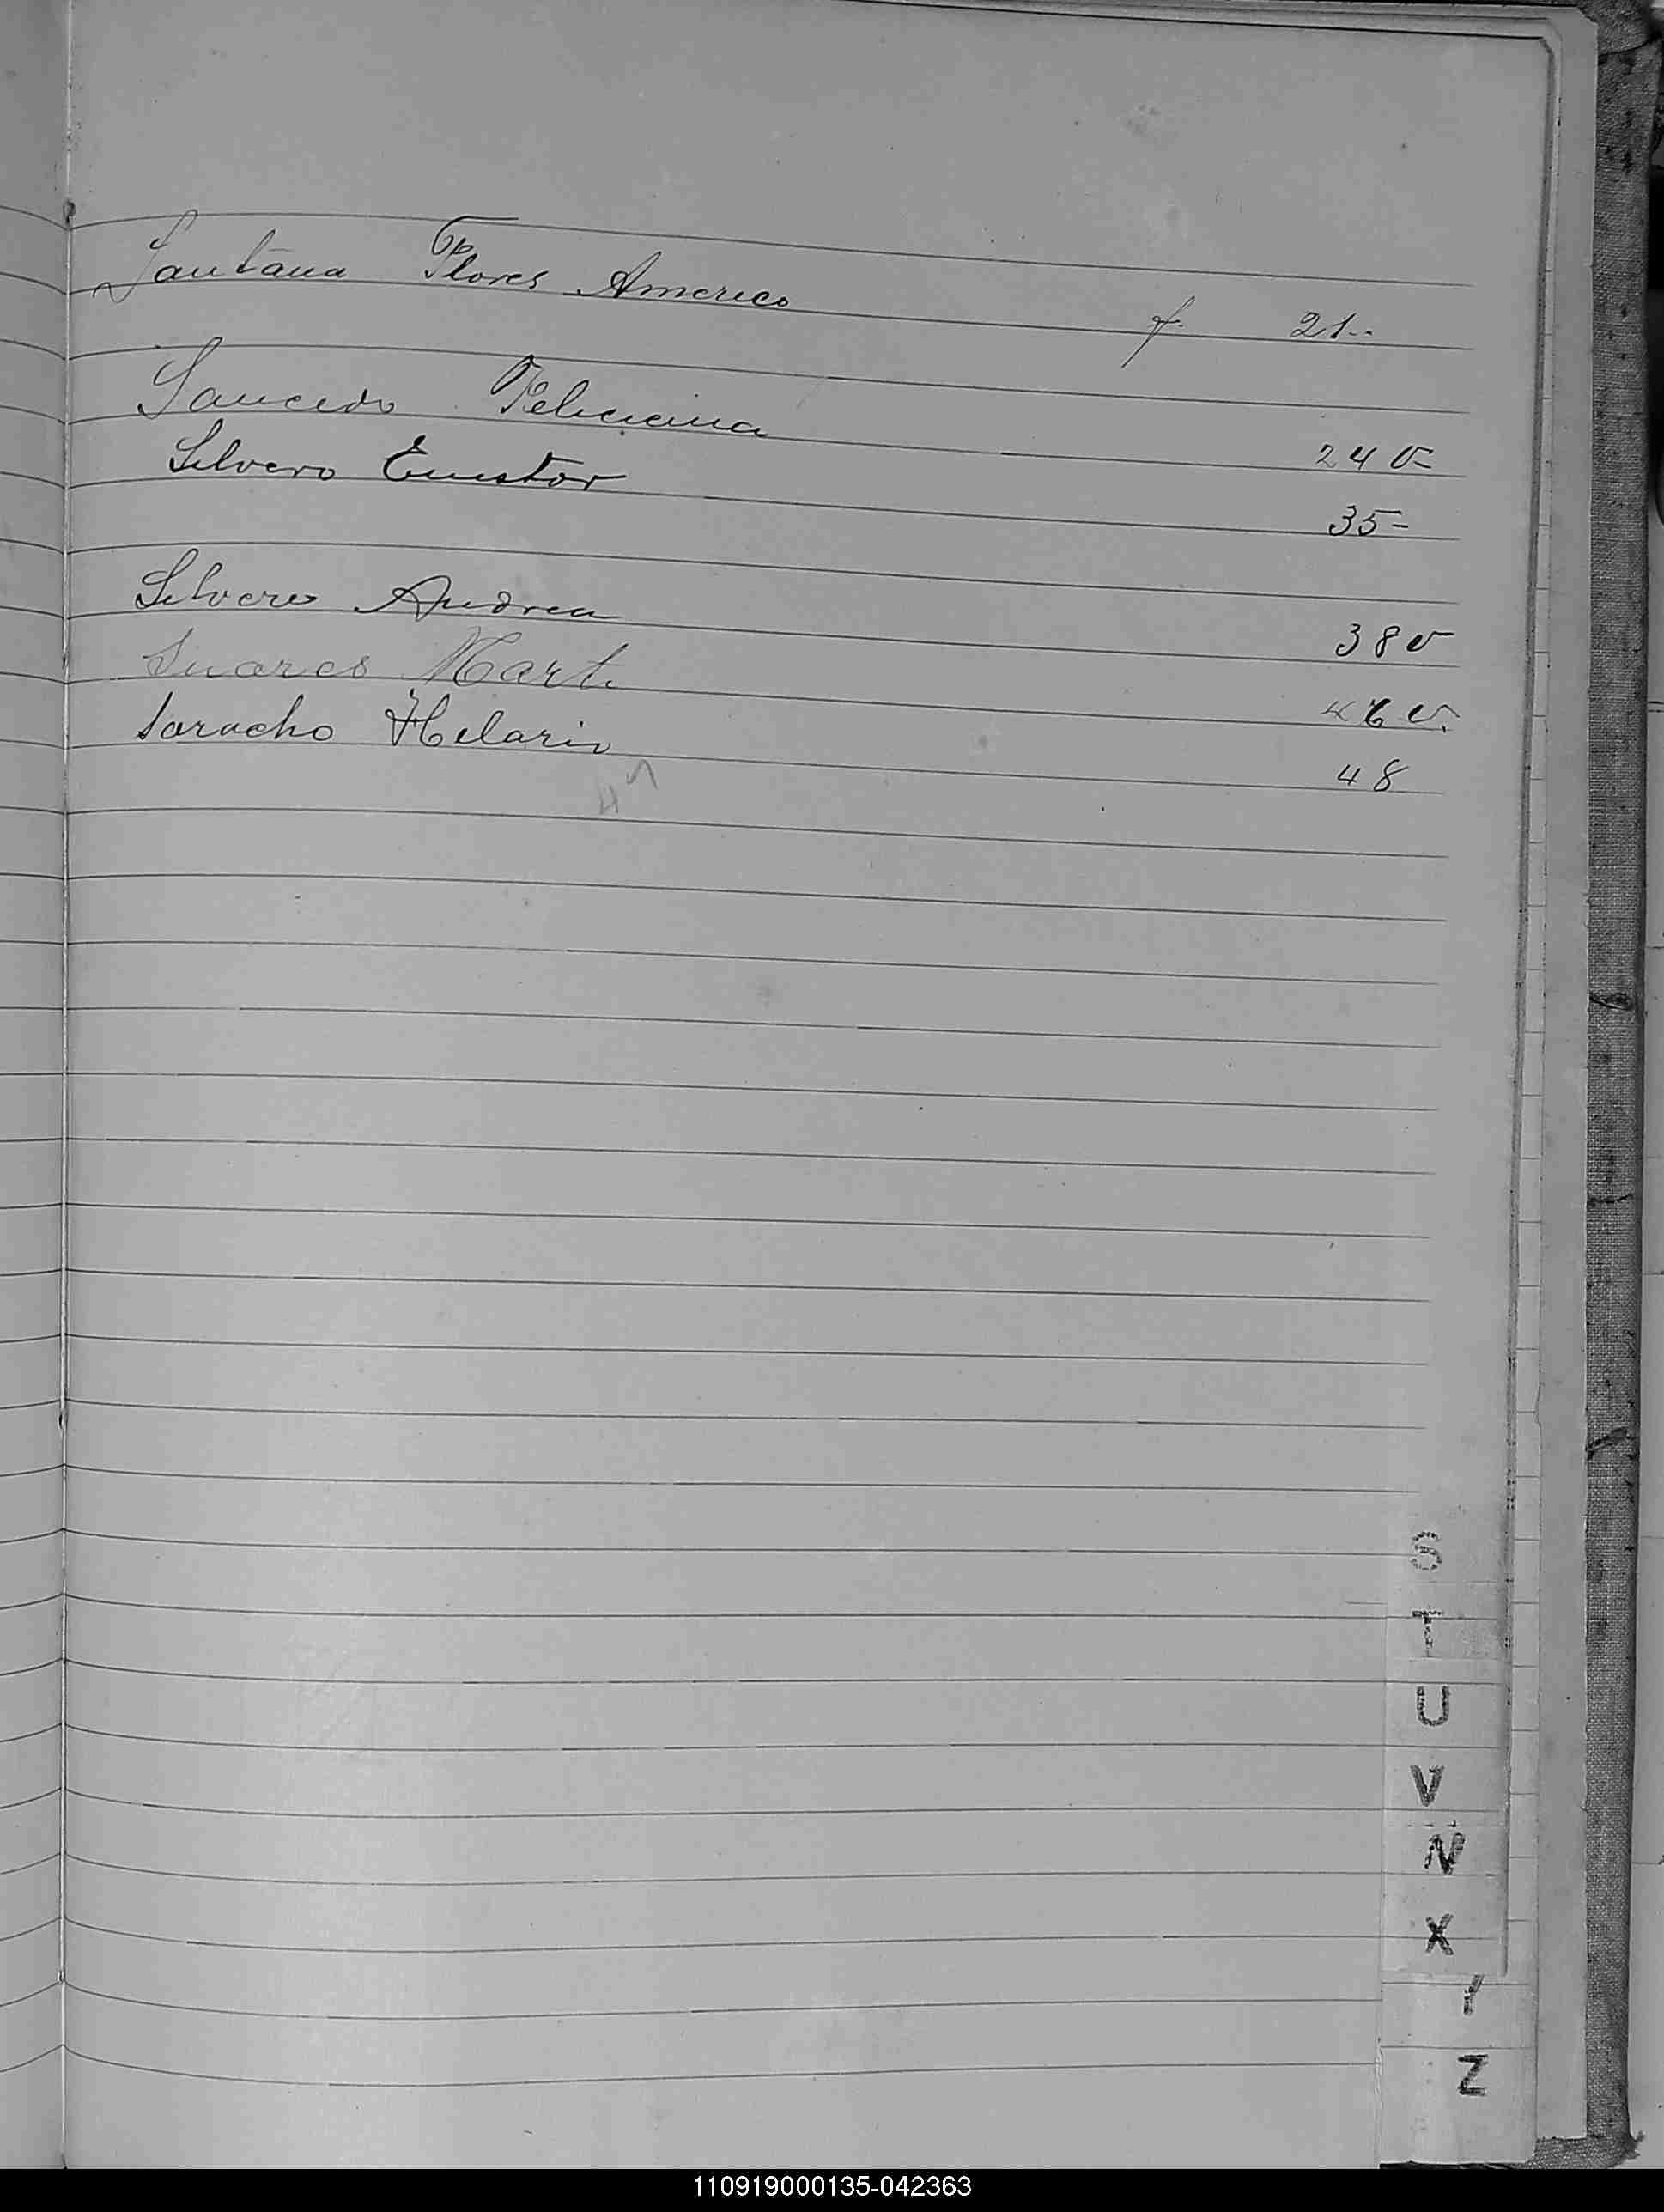 Santana Flores Americo f. 21--
Saucedo Feliciana 24 v=
Silvero 35=
Silvero Andrea 38 v
Suares Mart. 46 v.
Saracho Hilario 48
S
T
U
V
X
Y
Z
110919000135-042363